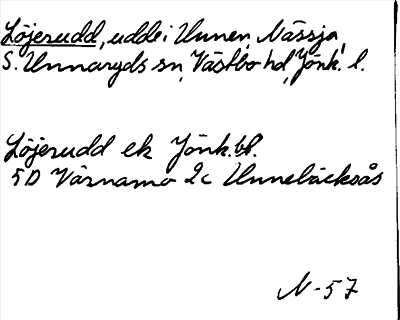 Löjerudd, udde i Unnen, Nässja,
S. Unnaryds sn, Västbo hd, Jönk. l.
Löjerudd ek Jönk.bl.
5D Värnamo 2c Unnebäcksås
N-57